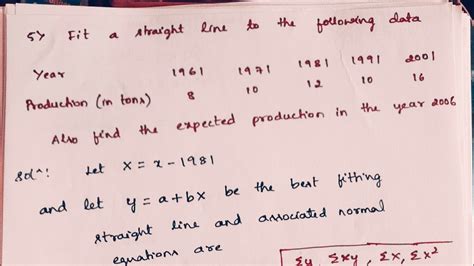 5> Fit a straight line to the following data
Year 1961 1971 1981 1991 2001
Production (in tons) 8 10 12 10 16
Also find the expected production in the year 2006
Solⁿ: Let X = x - 1981
and let y = a + bX be the best fitting
straight line and associated normal
equations are
Σy, Σxy, Σx, Σx²